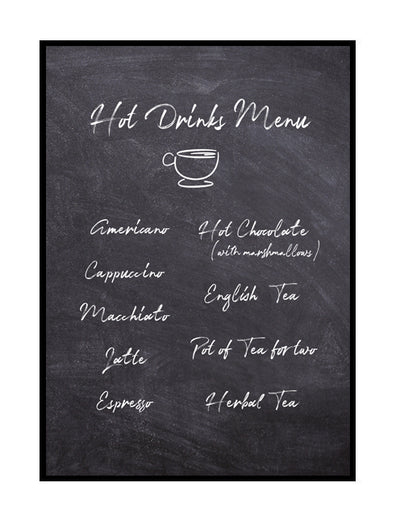 Hot Drinks Menu
Americano
Cappuccino
Macchiato
Latte
Espresso
Hot Chocolate
(with marshmallows)
English Tea
Pot of Tea for two
Herbal Tea